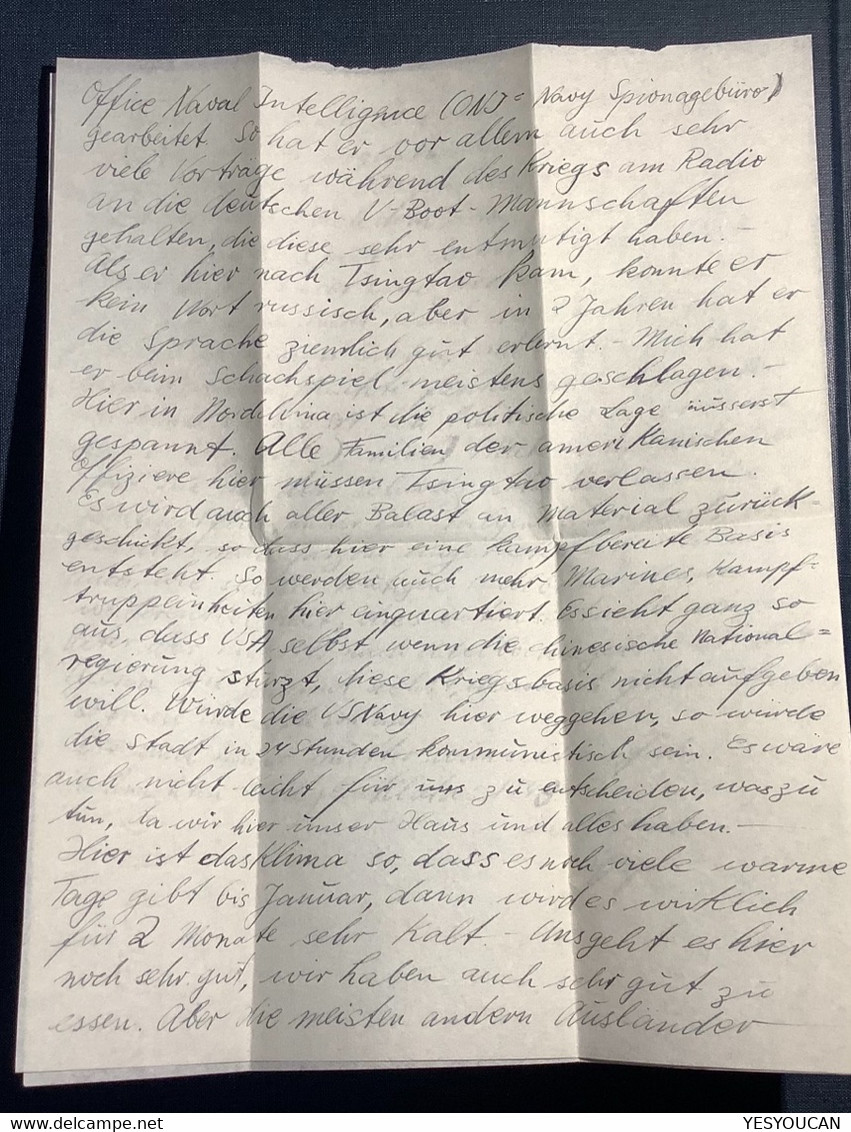 Office Naval Intelligence (ONI = Navy Spionagebüro)
gearbeitet. So hat er vor allem auch sehr
viele Vorträge während des Kriegs am Radio
an die deutschen U-Boot-Mannschaften
gehalten, die diese sehr entmutigt haben. -
Als er hier nach Tsingtao kam, konnte er
kein Wort russisch, aber in 2 Jahren hat er
die Sprache ziemlich gut erlernt. - Mich hat
er beim Schachspiel meistens geschlagen. -
Hier in Nordchina ist die politische Lage äusserst
gespannt. Alle Familien der amerikanischen
Offiziere hier müssen Tsingtao verlassen.
Es wird auch aller Balast an Material zurück-
geschickt, so dass hier eine kampfbereite Basis
entsteht. So werden auch mehr Marines, Kampf-
truppeinheiten hier einquartiert. Es sieht ganz so
aus, dass USA selbst wenn die chinesische National=
regierung stürzt, diese Kriegsbasis nicht aufgeben
will. Würde die US Navy hier weggehen, so würde
die Stadt in 24 Stunden kommunistisch sein. Es wäre
auch nicht leicht für uns zu entscheiden, was zu
tun, da wir hier unser Haus und alles haben. -
Hier ist das Klima so, dass es noch viele warme
Tage gibt bis Januar, dann wird es wirklich
für 2 Monate sehr kalt. - Uns geht es hier
noch sehr gut, wir haben auch sehr gut zu
essen. Aber die meisten andern Ausländer
YESYOUCAN